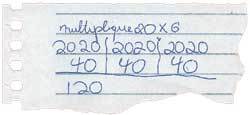 multiplique 20 x 6
20 20 | 20 20 | 20 20
40 | 40 | 40
120